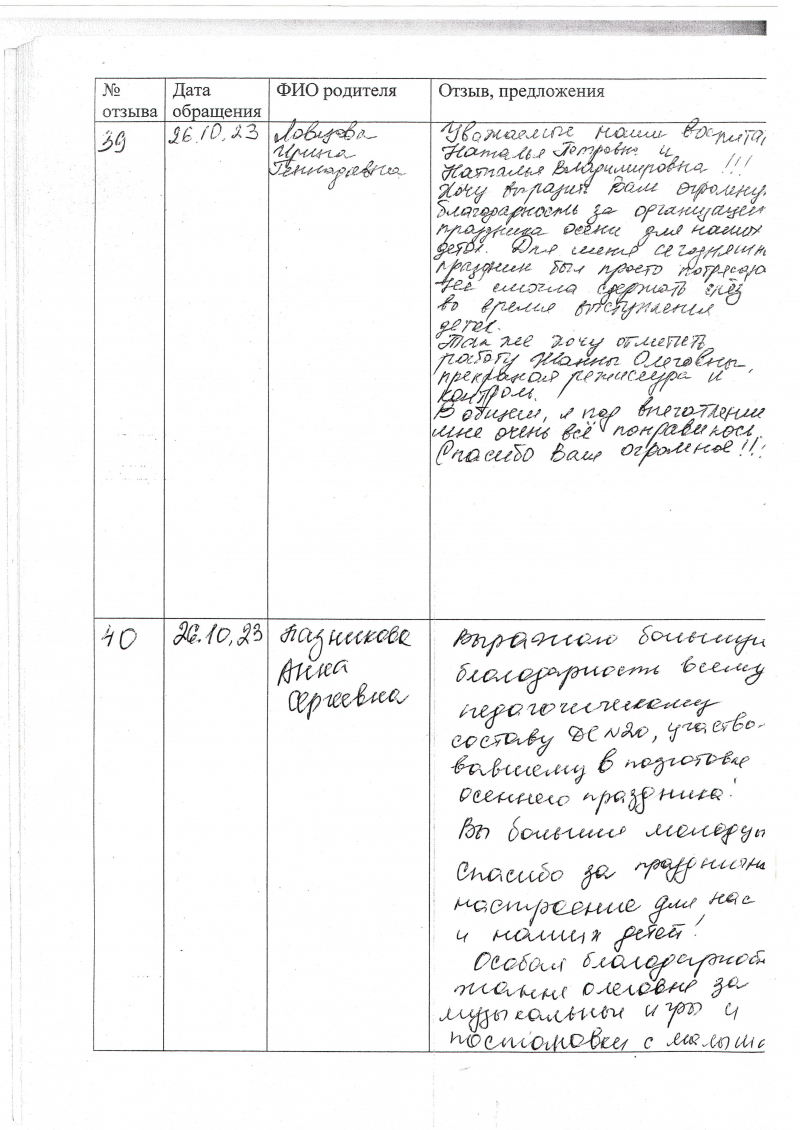 № отзыва
Дата обращения
ФИО родителя
Отзыв, предложения
39
26.10.23
Ирина
Геннадьевна
Уважаемые наши воспита
Наталья Петровна и
Наталья Владимировна !!!
Хочу выразить Вам огромну
благодарность за организацию
праздника осени для наших
детей. Для меня сегодняшн
праздник был просто потрясаю
не смогла сдержать слёз
во время выступления
детей.
Так же хочу отметить
работу Жанны Олеговны,
прекраная режиссура и
контроль.
В общем, я под впечатлением
мне очень всё понравилось.
Спасибо Вам огромное!!!
40
26.10.23
Пазникова
Анна
Сергеевна
Выражаю большую
благодарность всему
педагогическому
составу ДС №20, участво-
вавшему в подготовке
осеннего праздника!
Вы большие молодцы
Спасибо за праздничн
настроение для нас
и наших детей!
Особая благодарность
Жанне Олеговне за
музыкальные игры и
постановки с малыша